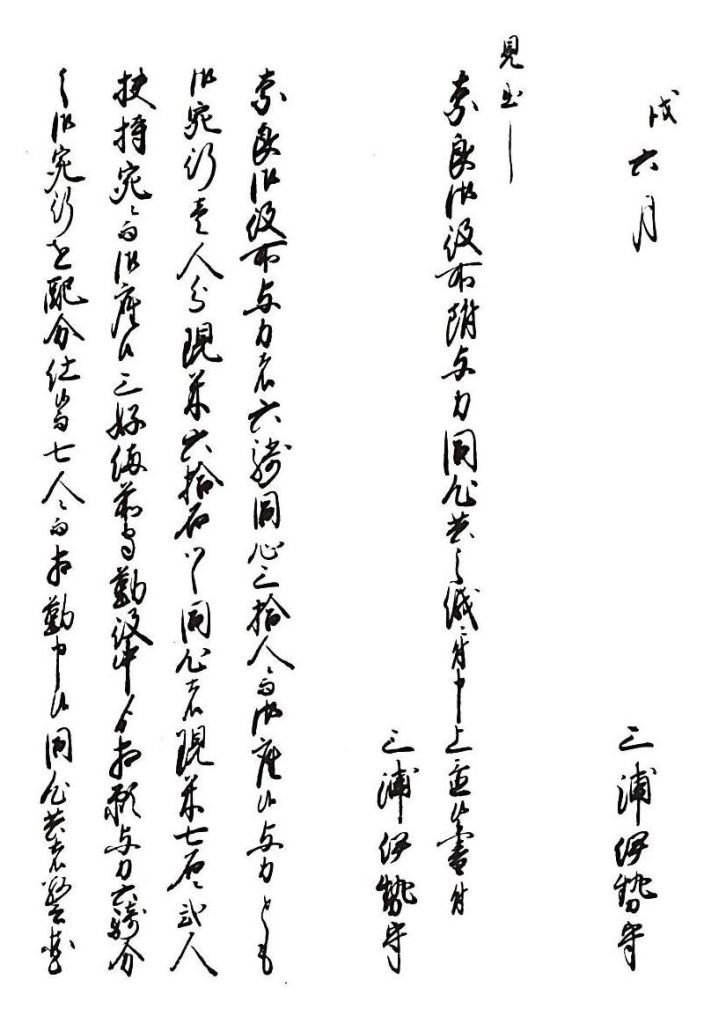 戌六月
三浦伊勢守
見出し
奈良御役所附与力同心共之儀ニ付申上置候書付
三浦伊勢守
奈良御役所与力者六騎同心三拾人ニ而御座候与力とも
御宛行壱人分現米六拾石ツヽ同心者現米七石弐人
扶持宛ニ而御座候三好備前守勤役中ゟ相願与力六騎分
之御宛行を配分仕当七人ニ而相勤申候同心共者